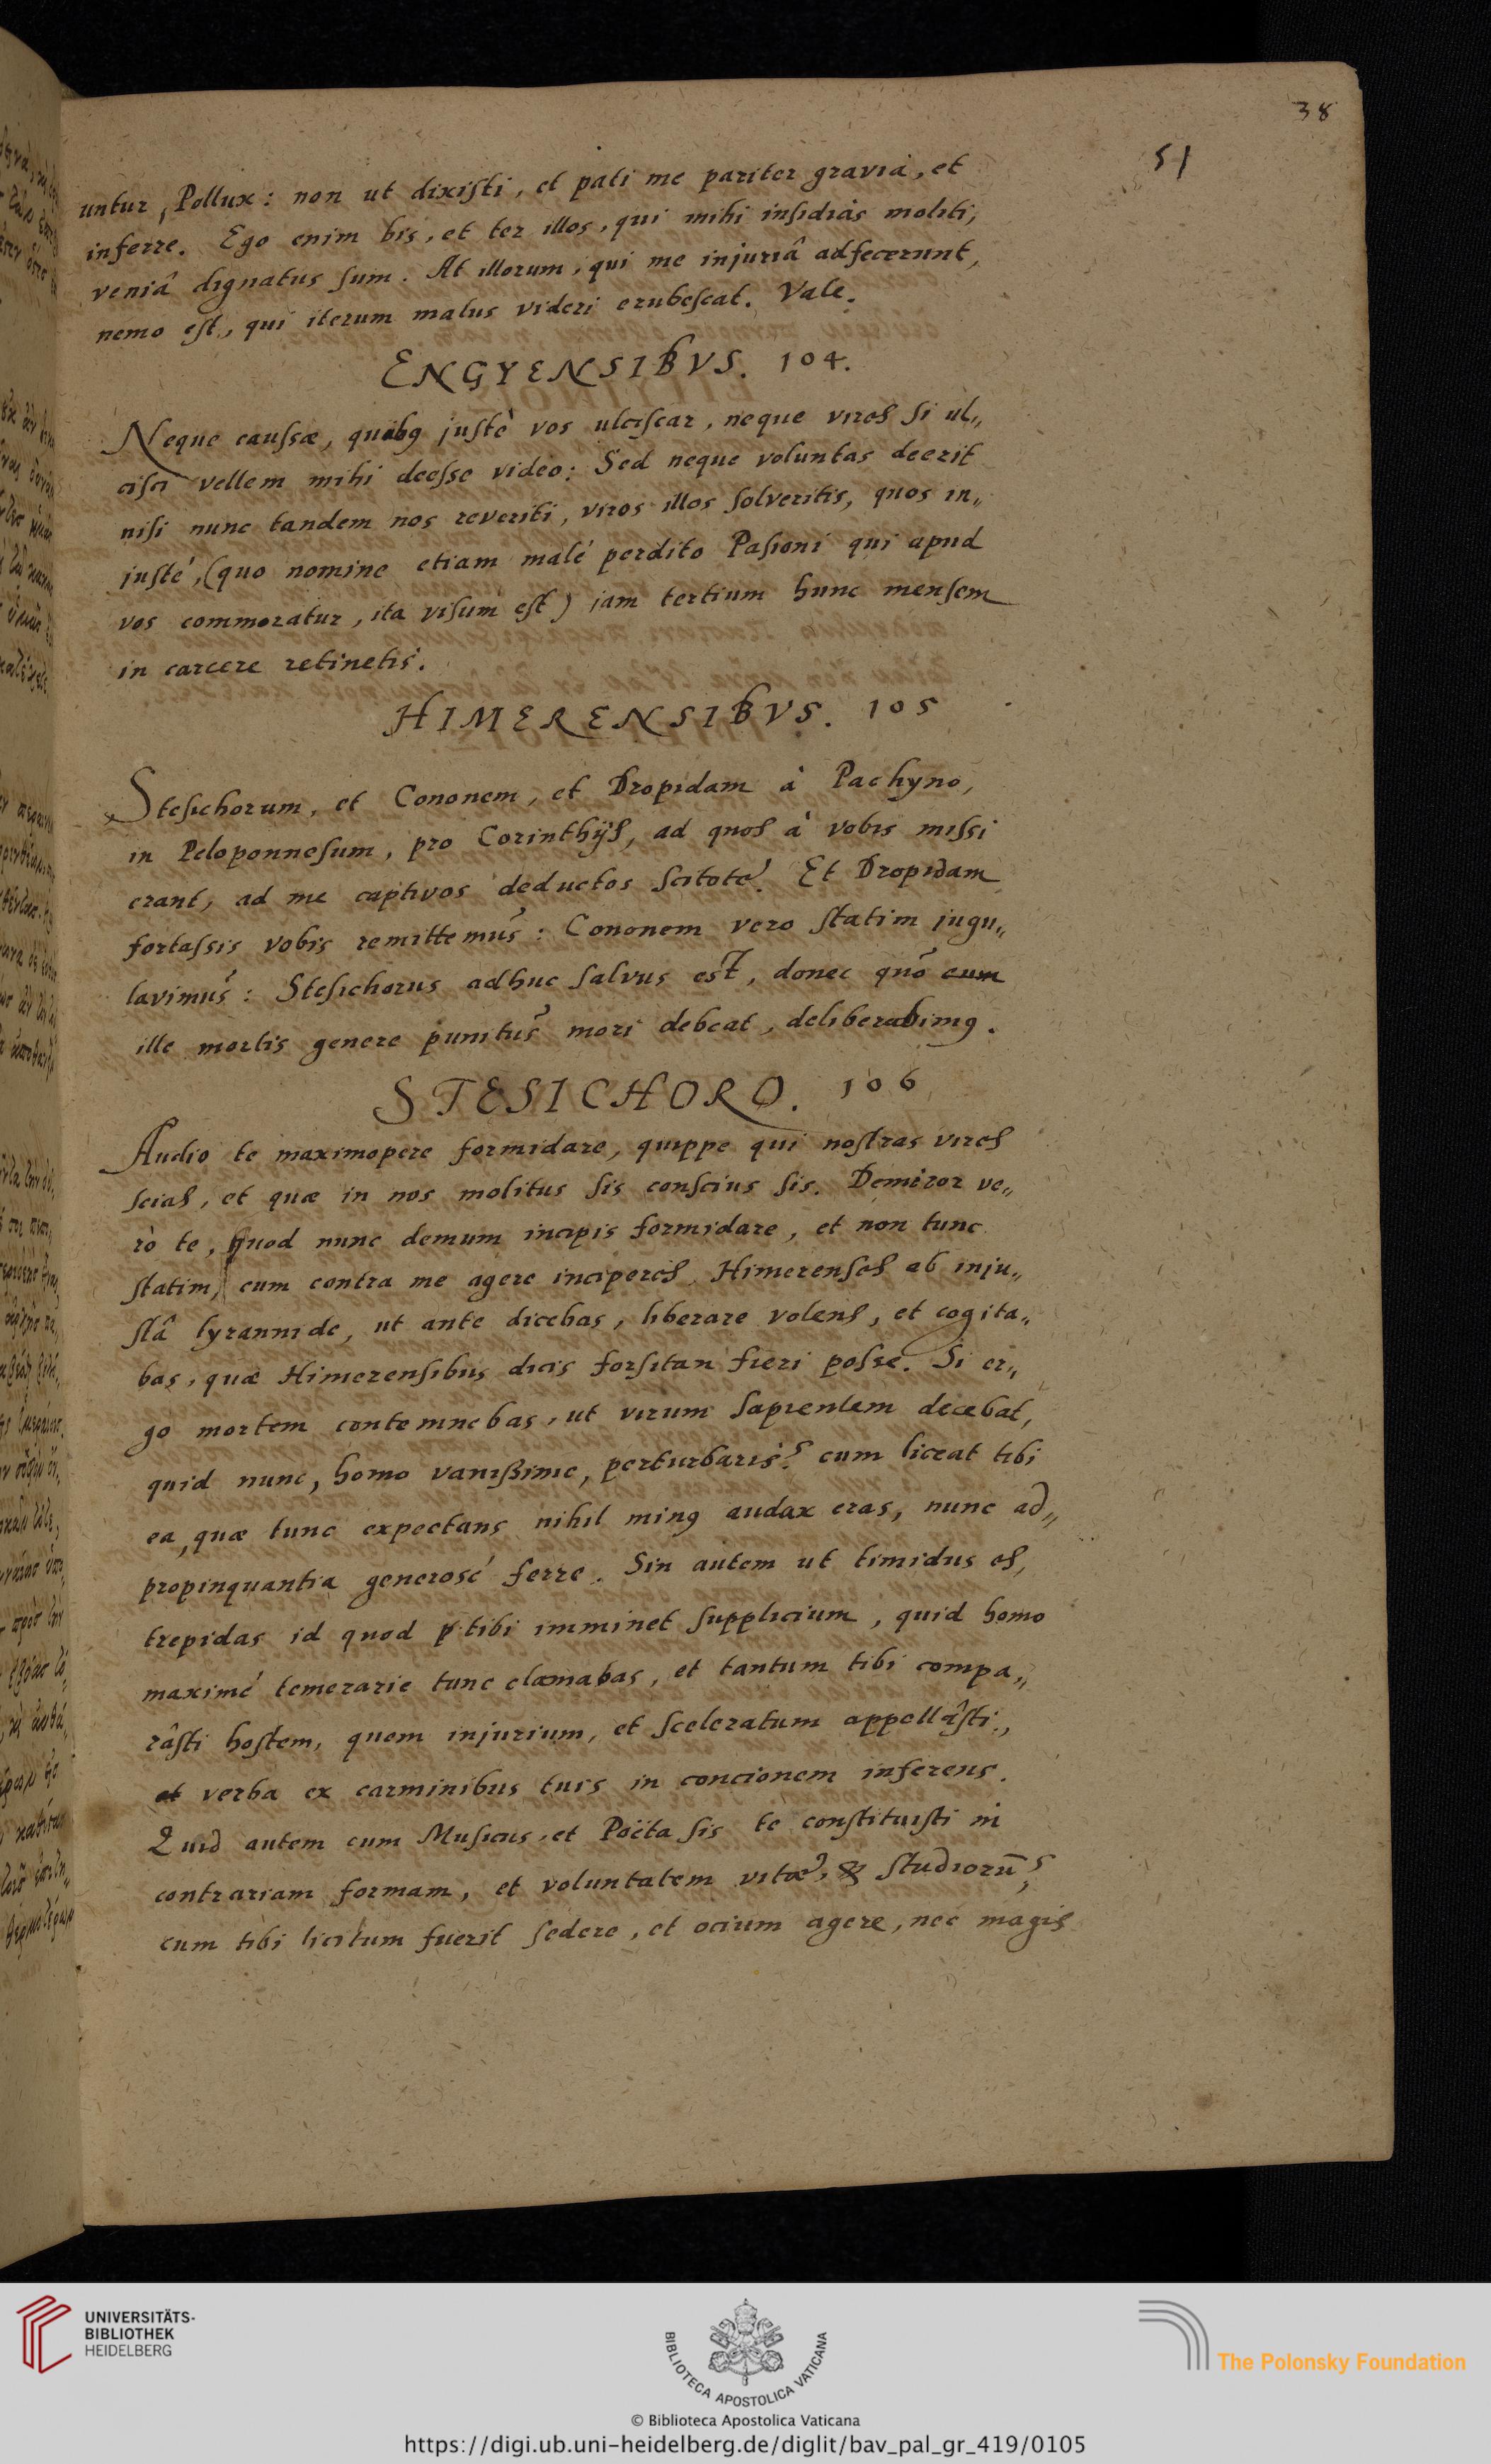 38
51
untur, Pollux: non ut dixisti, et pati me pariter gravia, et
inferre. Ego enim bis, et ter illos, qui mihi insidias moliti,
veniâ dignatus sum. At illorum, qui me injuriâ adfecerunt,
nemo est, qui iterum malus videri erubescat. Vale.
ENGYENSIBVS. 104.
Neque caussæ, quibꝰ justè vos ulciscar, neque vires si ul„
cisci vellem mihi deesse video: Sed neque voluntas deerit
nisi nunc tandem nos reveriti, viros illos solveritis, quos in„
justé, (quo nomine etiam malé perdito Pasioni qui apud
vos commoratur, ita visum est) jam tertium hunc mensem
in carcere retinetis.
HIMERENSIBVS. 105
Stesichorum, et Cononem, et Dropidam à Pachyno,
in Peloponnesum, pro Corinthijs, ad quos à vobis missi
erant, ad me captivos deductos scitote. Et Dropidam
fortassis vobis remittemus: Cononem vero statim jugu„
lavimus: Stesichorus adhuc salvus est, donec quō eum
ille mortis genere punitus mori debeat, deliberabimꝰ.
STESICHORO. 106
Audio te maximopere formidare, quippe qui nostras vires
scias, et quæ in nos molitus sis conscius sis. Demiror ve„
rò te, quod nunc demum incipis formidare, et non tunc
statim, cum contra me agere inciperes Himerenses ab inju„
stâ tyrannide, ut ante dicebas, liberare volens, et cogita„
bas, quæ Himerensibus dicis forsitan fieri posse. Si er„
go mortem contemnebas, ut virum sapientem decebat,
quid nunc, homo vanißime, perturbaris? cum liceat tibi
ea, quæ tunc expectans nihil minꝰ audax eras, nunc ad„
propinquantia generosé ferre. Sin autem ut timidus es,
trepidas id quod tibi imminet supplicium, quid homo
maximé temerarie tunc clamabas, et tantum tibi compa„
râsti hostem, quem injurium, et sceleratum appellâsti,
et verba ex carminibus tuis in concionem inferens.
Quid autem cum Musicus, et Poëta sis te constituisti in
contrariam formam, et voluntatem vitæ, & studiorū?
cum tibi licitum fuerit sedere, et ocium agere, nec magis
UNIVERSITÄTS-
BIBLIOTHEK
HEIDELBERG
BIBLIOTECA APOSTOLICA VATICANA
The Polonsky Foundation
© Biblioteca Apostolica Vaticana
https://digi.ub.uni-heidelberg.de/diglit/bav_pal_gr_419/0105